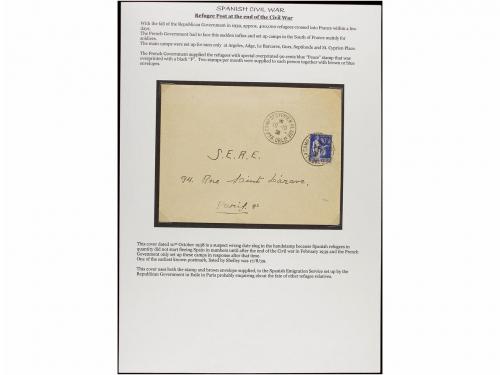 SPANISH CIVIL WAR
Refugee Post at the end of the Civil War
With the fall of the Republican Government in 1939, approx. 400,000 refugees crossed into France within a few
days.
The French Government had to face this sudden influx and set up camps in the South of France mainly for
soldiers.
The main camps were set up for men only at Argeles, Adge, Le Barcares, Gurs, Septfonds and St. Cyprien Place.
The French Government supplied the refugees with special overprinted 90 cents blue "Peace" stamp that was
overprinted with a black "F". Two stamps per month were supplied to each person together with brown or blue
envelopes.
S.E.R.E.
94. Rue Saint Lazare
Paris 9e
This cover dated 10th October 1938 is a suspect wrong date slug in the handstamp because Spanish refugees in
quantity did not start fleeing Spain in numbers until after the end of the Civil war in February 1939 and the French
Government only set up these camps in response after that time.
One of the earliest known postmark, listed by Shelley was 17/8/39.
This cover uses both the stamp and brown envelope supplied, to the Spanish Emigration Service set up by the
Republican Government in Exile in Paris probably enquiring about the fate of other refugee relatives.